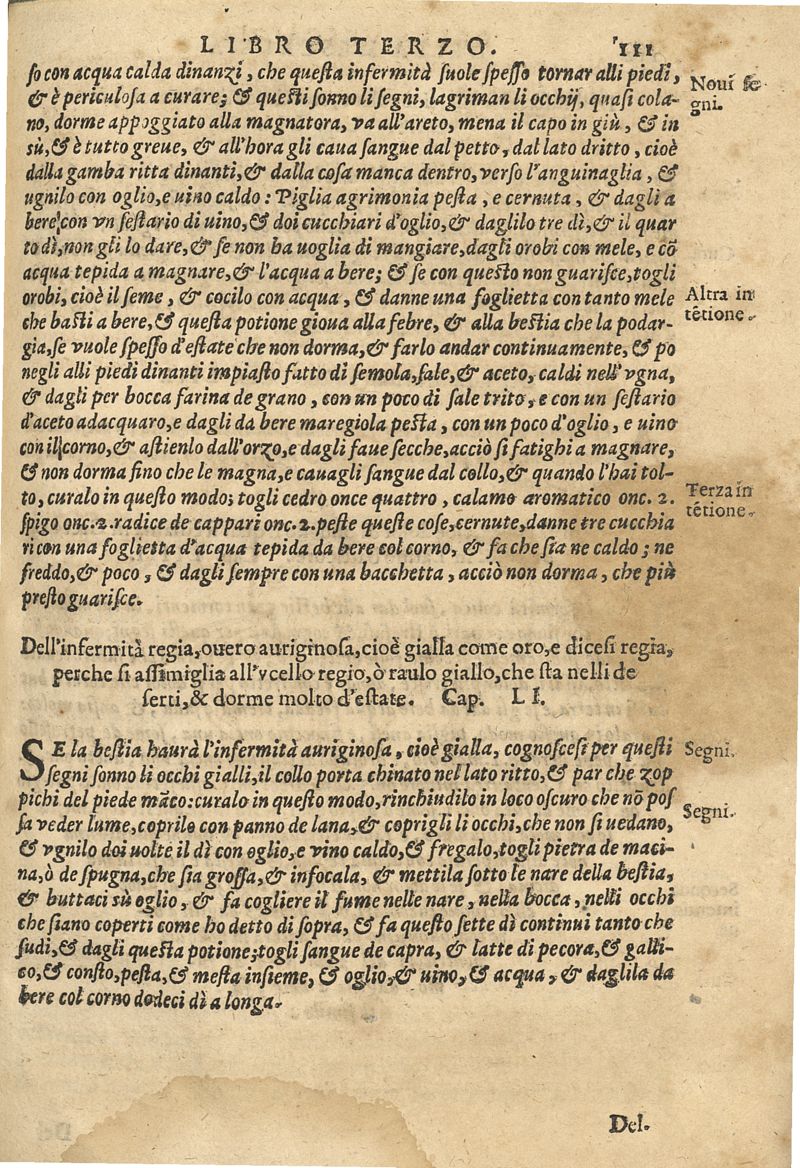 LIBRO TERZO. 111
so con acqua calda dinanzi, che questa infermità suole spesso tornar alli piedi,
& è periculosa a curare; & questi sonno li segni, lagriman li occhij, quasi cola-
no, dorme appoggiato alla magnatora, va all'areto, mena il capo in giù, & in
sù, & è tutto greue, & all'hora gli caua sangue dal petto, dal lato dritto, cioè
dalla gamba ritta dinanti, & dalla cosa manca dentro, verso l'anguinaglia, &
ugnilo con oglio, e uino caldo: Piglia agrimonia pesta, e cernuta, & dagli a
bere con vn sestario di uino, & doi cucchiari d'oglio, & daglilo tre dì, & il quar
to dì, non gli lo dare, & se non ha uoglia di mangiare, dagli orobi con mele, e cō
acqua tepida a magnare, & l'acqua a bere; & se con questo non guarisce, togli
orobi, cioè il seme, & cocilo con acqua, & danne una foglietta con tanto mele
che basti a bere, & questa potione gioua alla febre, & alla bestia che la podar-
gia, se vuole spesso d'estate che non dorma, & farlo andar continuamente, & po
negli alli piedi dinanti impiasto fatto di semola, sale, & aceto, caldi nell'vgna,
& dagli per bocca farina de grano, con un poco di sale trito, e con un sestario
d'aceto adacquaro, e dagli da bere maregiola pesta, con un poco d'oglio, e uino
con il corno, & astienlo dall'orzo, e dagli faue secche, acciò si fatighi a magnare,
& non dorma fino che le magna, e cauagli sangue dal collo, & quando l'hai tol-
to, curalo in questo modo; togli cedro once quattro, calamo aromatico onc. 2.
spigo onc. 2. radice de cappari onc. 2. peste queste cose, cernute, danne tre cucchia
ri con una foglietta d'acqua tepida da bere col corno, & fa che sia ne caldo; ne
freddo, & poco, & dagli sempre con una bacchetta, acciò non dorma, che più
presto guarisce.
Noui se
gni.
Altra in
tētione.
Terza in
tētione.
Dell'infermità regia, ouero auriginosa, cioè gialla come oro, e dicesi regia,
perche si assimiglia all'vcello regio, ò raulo giallo, che sta nelli de
serti, & dorme molto d'estate. Cap. LI.
SE la bestia haurà l'infermità auriginosa, cioè gialla, cognoscesi per questi
segni sonno li occhi gialli, il collo porta chinato nel lato ritto, & par che zop
pichi del piede māco: curalo in questo modo, rinchiudilo in loco oscuro che nō pos
sa veder lume, coprilo con panno de lana, & coprigli li occhi, che non si uedano,
& vgnilo doi uolte il dì con oglio, e vino caldo, & fregalo, togli pietra de maci-
na, ò de spugna, che sia grossa, & infocala, & mettila sotto le nare della bestia,
& buttaci sù oglio, & fa cogliere il fume nelle nare, nella bocca, nelli occhi
che siano coperti come ho detto di sopra, & fa questo sette dì continui tanto che
sudi, & dagli questa potione; togli sangue de capra, & latte di pecora, & galli-
co, & consto, pesta, & mesta insieme, & oglio, & uino, & acqua, & daglila da
bere col corno dodeci dì a longa.
Segni.
Segni.
Del.